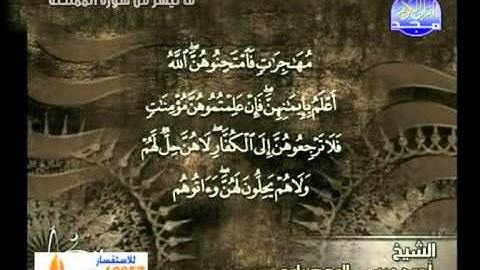 ما تيسر من سورة الممتحنة
مجد
مُهَٰجِرَٰتٍ فَٱمْتَحِنُوهُنَّ ۖ ٱللَّهُ
أَعْلَمُ بِإِيمَٰنِهِنَّ ۖ فَإِنْ عَلِمْتُمُوهُنَّ مُؤْمِنَٰتٍ
فَلَا تَرْجِعُوهُنَّ إِلَى ٱلْكُفَّارِ ۖ لَا هُنَّ حِلٌّ لَّهُمْ
وَلَا هُمْ يَحِلُّونَ لَهُنَّ ۖ وَءَاتُوهُم
الشيخ
للاستفسار